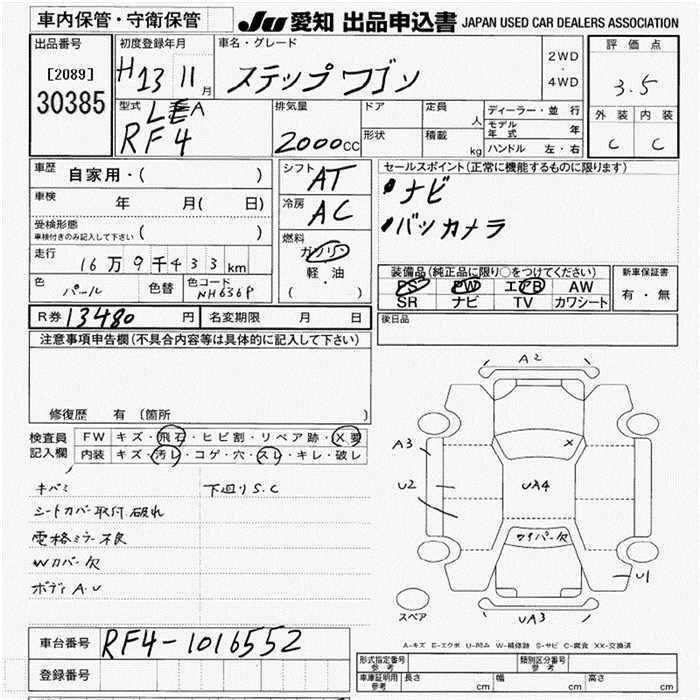 車内保管・守衛保管
JU 愛知 出品申込書 JAPAN USED CAR DEALERS ASSOCIATION
出品番号
[2089]
30385
初度登録年月
H13 11月
車名・グレード
ステップ ワゴン
2WD
・
4WD
評価点
3.5
外装 内装
C C
型式
LEA
RF4
排気量
2000cc
ドア
形状
定員
人
積載
kg
ディーラー・並行
モデル年式 年
ハンドル 左・右
車歴 自家用・( )
車検 年 月( 日)
受検形態
車検付きのみ記入して下さい ( )
走行 16万9千433km
色 パール 色替 色コード NH636P
シフト AT
冷房 AC
燃料
ガソリン
軽・油
( )
セールスポイント(正常に機能するものに限ります)
・ナビ
・バックカメラ
装備品(純正品に限り○をつけてください)
PS PW エアB AW
SR ナビ TV カワシート
新車保証書
有・無
R券 13480円 名変期限 月 日
後日品
注意事項申告欄(不具合内容等は具体的に記入して下さい)
修復歴 有 (箇所 )
検査員
記入欄
FW キズ・飛石・ヒビ割・リペア跡・X要
内装 キズ・汚レ・コゲ・穴・スレ・キレ・破レ
キバミ 下廻りS.C
シートカバー取付 破れ
電格ミラー不良
Wカバー欠
ボディA.U
A2
A3
X
U2
UA4
ワイパー欠
U1
スペア
UA3
A-キズ E-エクボ U-凹み W-補修跡 S-サビ C-腐食 XX-交換済
車台番号 RF4-1016552
登録番号
形式指定番号
参考
類別区分番号
参考
車庫証明用
参考
長さ cm 幅 cm 高さ cm